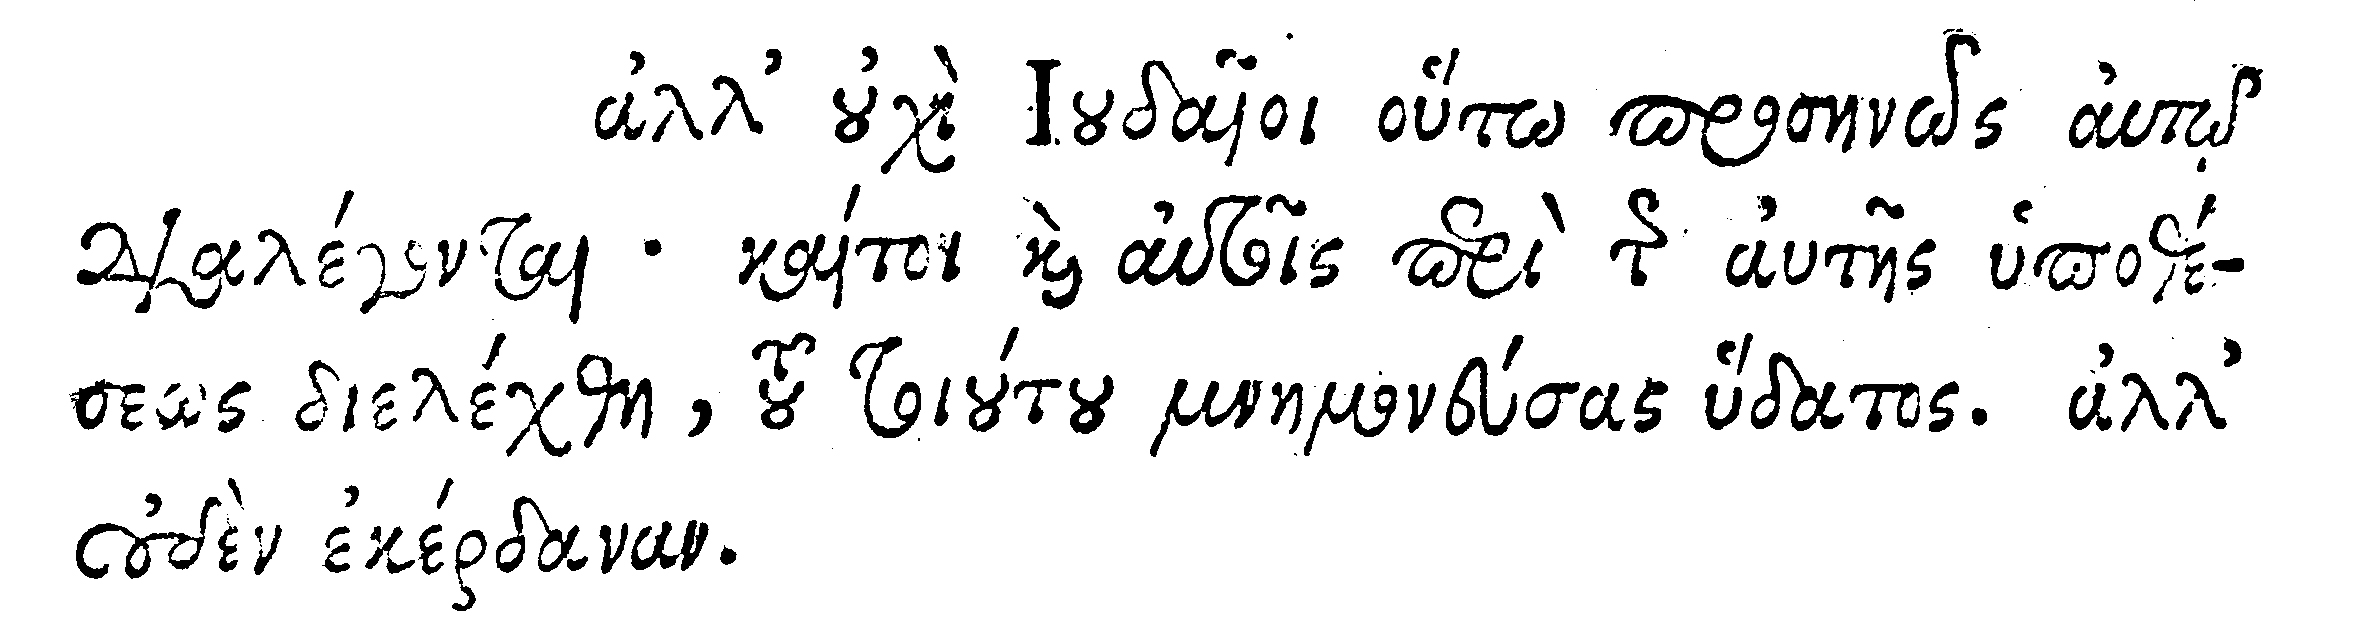 ἀλλ' οὐχὶ Ἰουδαῖοι οὕτω προσηνῶς αὐτῷ
διαλέγονται· καίτοι καὶ αὐτοῖς περὶ τῆς αὐτῆς ὑποθέ-
σεως διελέχθη, τοῦ τοιούτου μνημονεύσας ὕδατος. ἀλλ'
οὐδὲν ἐκέρδαναν.